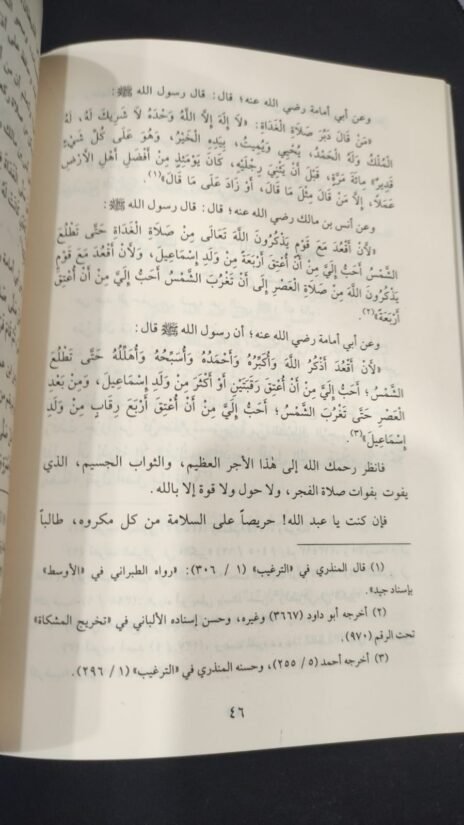 وعن أبي أمامة رضي الله عنه؛ قال: قال رسول الله ﷺ:
«مَنْ قَالَ دُبُرَ صَلَاةِ الْغَدَاةِ: «لَا إِلَهَ إِلَّا اللَّهُ وَحْدَهُ لَا شَرِيكَ لَهُ، لَهُ
الْمُلْكُ وَلَهُ الْحَمْدُ، يُحْيِي وَيُمِيتُ، بِيَدِهِ الْخَيْرُ، وَهُوَ عَلَى كُلِّ شَيْءٍ
قَدِيرٌ» مِائَةَ مَرَّةٍ، قَبْلَ أَنْ يَثْنِيَ رِجْلَيْهِ، كَانَ يَوْمَئِذٍ مِنْ أَفْضَلِ أَهْلِ الْأَرْضِ
عَمَلًا، إِلَّا مَنْ قَالَ مِثْلَ مَا قَالَ، أَوْ زَادَ عَلَى مَا قَالَ»(١).
وعن أنس بن مالك رضي الله عنه؛ قال: قال رسول الله ﷺ:
«لَأَنْ أَقْعُدَ مَعَ قَوْمٍ يَذْكُرُونَ اللَّهَ تَعَالَى مِنْ صَلَاةِ الْغَدَاةِ حَتَّى تَطْلُعَ
الشَّمْسُ أَحَبُّ إِلَيَّ مِنْ أَنْ أُعْتِقَ أَرْبَعَةً مِنْ وَلَدِ إِسْمَاعِيلَ، وَلَأَنْ أَقْعُدَ مَعَ قَوْمٍ
يَذْكُرُونَ اللَّهَ مِنْ صَلَاةِ الْعَصْرِ إِلَى أَنْ تَغْرُبَ الشَّمْسُ أَحَبُّ إِلَيَّ مِنْ أَنْ أُعْتِقَ
أَرْبَعَةً»(٢).
وعن أبي أمامة رضي الله عنه؛ أن رسول الله ﷺ قال:
«لَأَنْ أَقْعُدَ أَذْكُرُ اللَّهَ وَأُكَبِّرُهُ وَأَحْمَدُهُ وَأُسَبِّحُهُ وَأُهَلِّلُهُ حَتَّى تَطْلُعَ
الشَّمْسُ؛ أَحَبُّ إِلَيَّ مِنْ أَنْ أُعْتِقَ رَقَبَتَيْنِ أَوْ أَكْثَرَ مِنْ وَلَدِ إِسْمَاعِيلَ، وَمِنْ بَعْدِ
الْعَصْرِ حَتَّى تَغْرُبَ الشَّمْسُ؛ أَحَبُّ إِلَيَّ مِنْ أَنْ أُعْتِقَ أَرْبَعَ رِقَابٍ مِنْ وَلَدِ
إِسْمَاعِيلَ»(٣).
فانظر رحمك الله إلى هٰذا الأجر العظيم، والثواب الجسيم، الذي
يفوت بفوات صلاة الفجر، ولا حول ولا قوة إلا بالله.
فإن كنت يا عبد الله! حريصاً على السلامة من كل مكروه، طالباً
(١) قال المنذري في «الترغيب» (١ / ٣٠٦): «رواه الطبراني في «الأوسط»
بإسناد جيد».
(٢) أخرجه أبو داود (٣٦٦٧) وغيره، وحسن إسناده الألباني في «تخريج المشكاة»
تحت الرقم (٩٧٠).
(٣) أخرجه أحمد (٥ / ٢٥٥)، وحسنه المنذري في «الترغيب» (١ / ٢٩٦).
٤٦